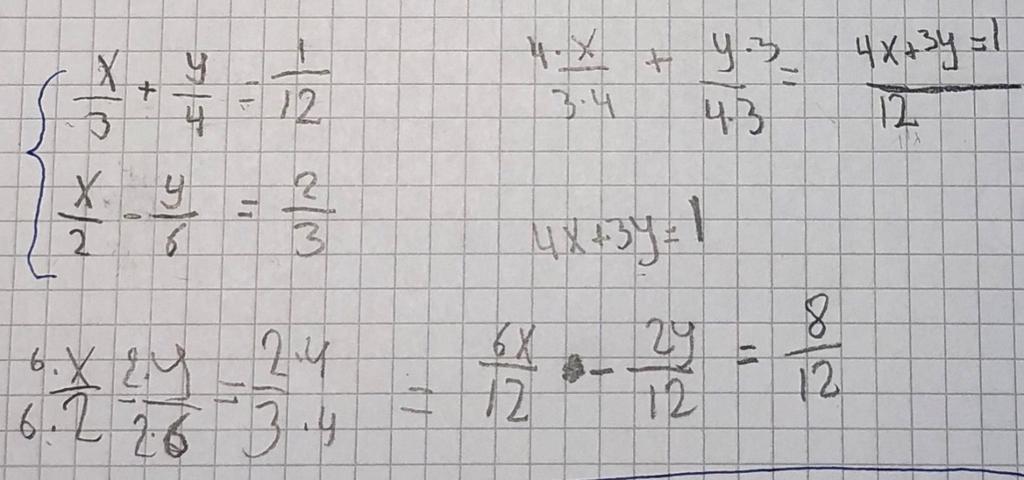 x/3 + y/4 = 1/12
x/2 - y/6 = 2/3
4·x/3·4 + y·3/4·3 = 4x+3y=1/12
4x+3y=1
6·x/6·2 - 2·y/2·6 = 2·4/3·4 = 6x/12 - 2y/12 = 8/12